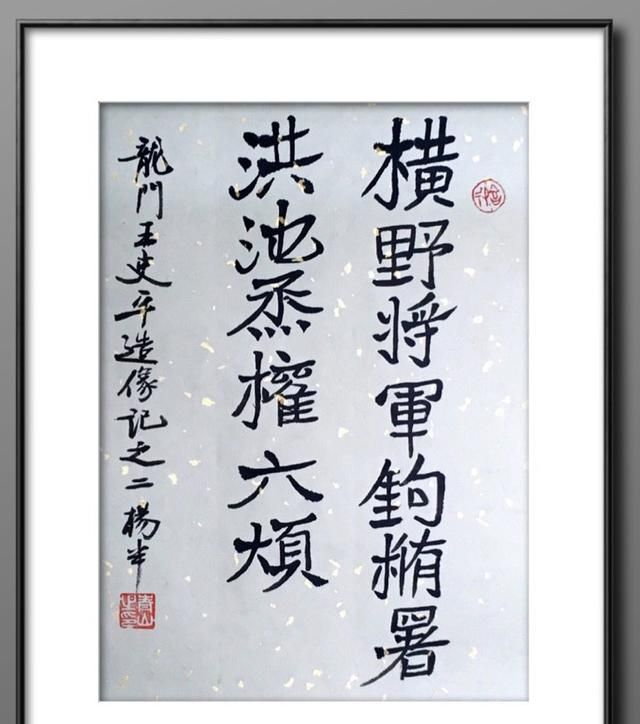 横野将軍鉤楯署
洪池烝權六煩
龍門王史平造像記之二 楊半